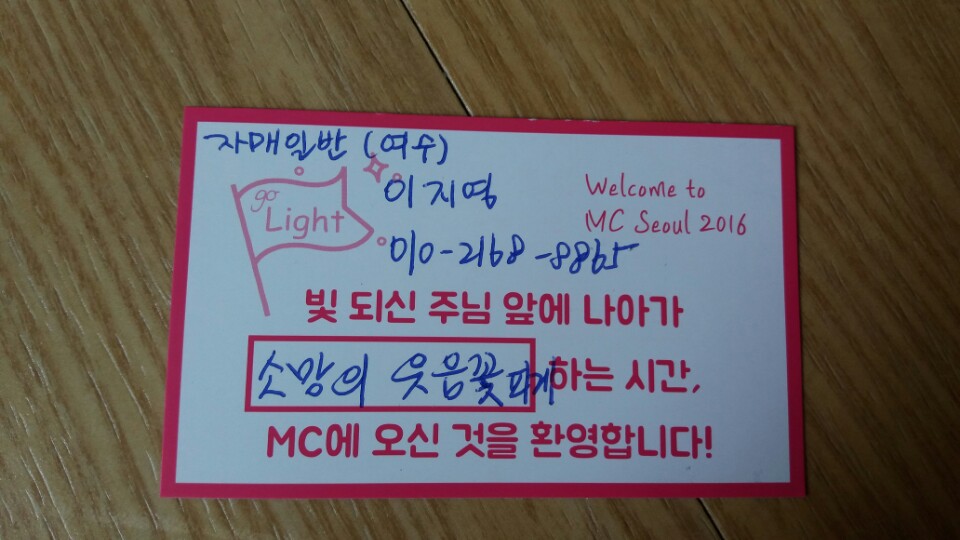 자매일반 (여수)
이지영
010-2168-8865
go
Light
Welcome to
MC Seoul 2016
빛 되신 주님 앞에 나아가
소망의 웃음꽃 피게 하는 시간,
MC에 오신 것을 환영합니다!